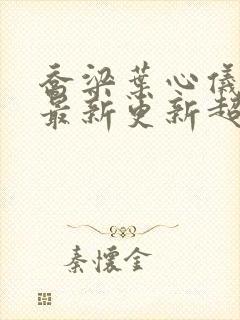 乔梁叶心仪
最新更新超
秦怀金